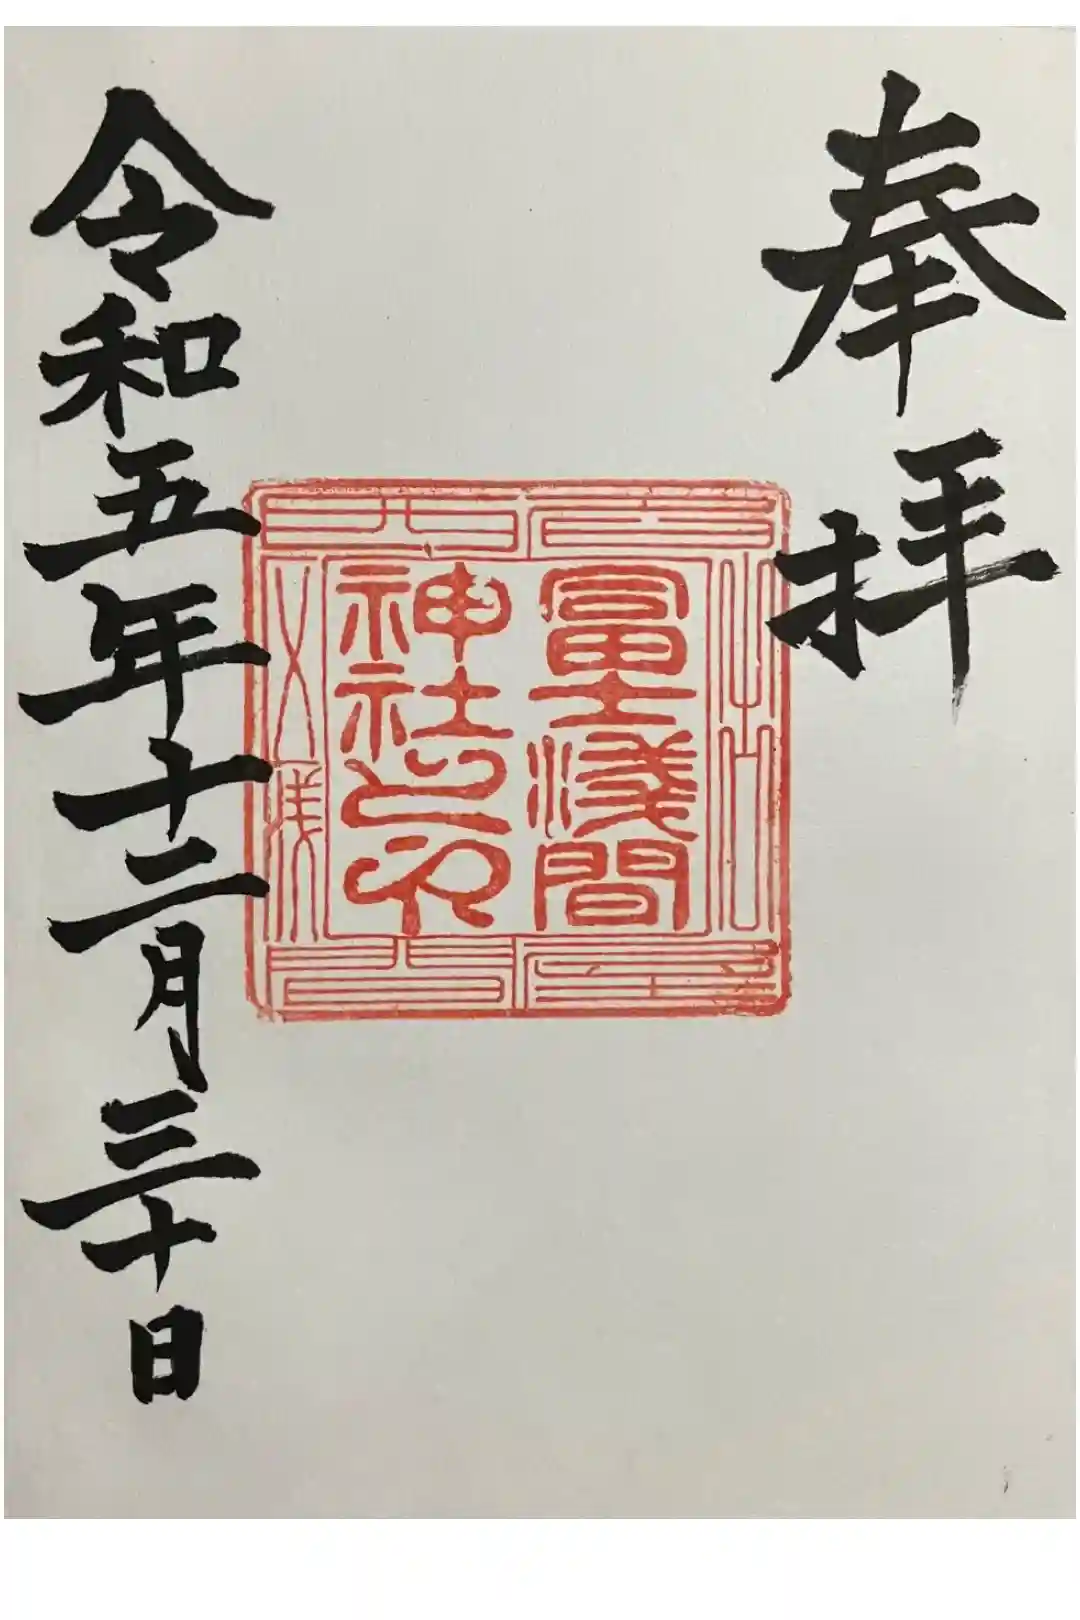 奉拝
冨士淺間
神社之印
令和五年十二月三十日